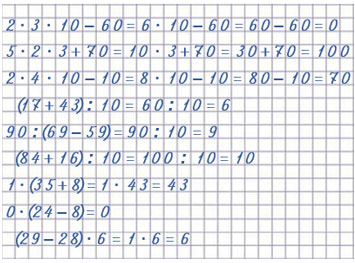 2 · 3 · 10 – 60 = 6 · 10 – 60 = 60 – 60 = 0
5 · 2 · 3 + 70 = 10 · 3 + 70 = 30 + 70 = 100
2 · 4 · 10 – 10 = 8 · 10 – 10 = 80 – 10 = 70
(17 + 43) : 10 = 60 : 10 = 6
90 : (69 – 59) = 90 : 10 = 9
(84 + 16) : 10 = 100 : 10 = 10
1 · (35 + 8) = 1 · 43 = 43
0 · (24 – 8) = 0
(29 – 28) · 6 = 1 · 6 = 6